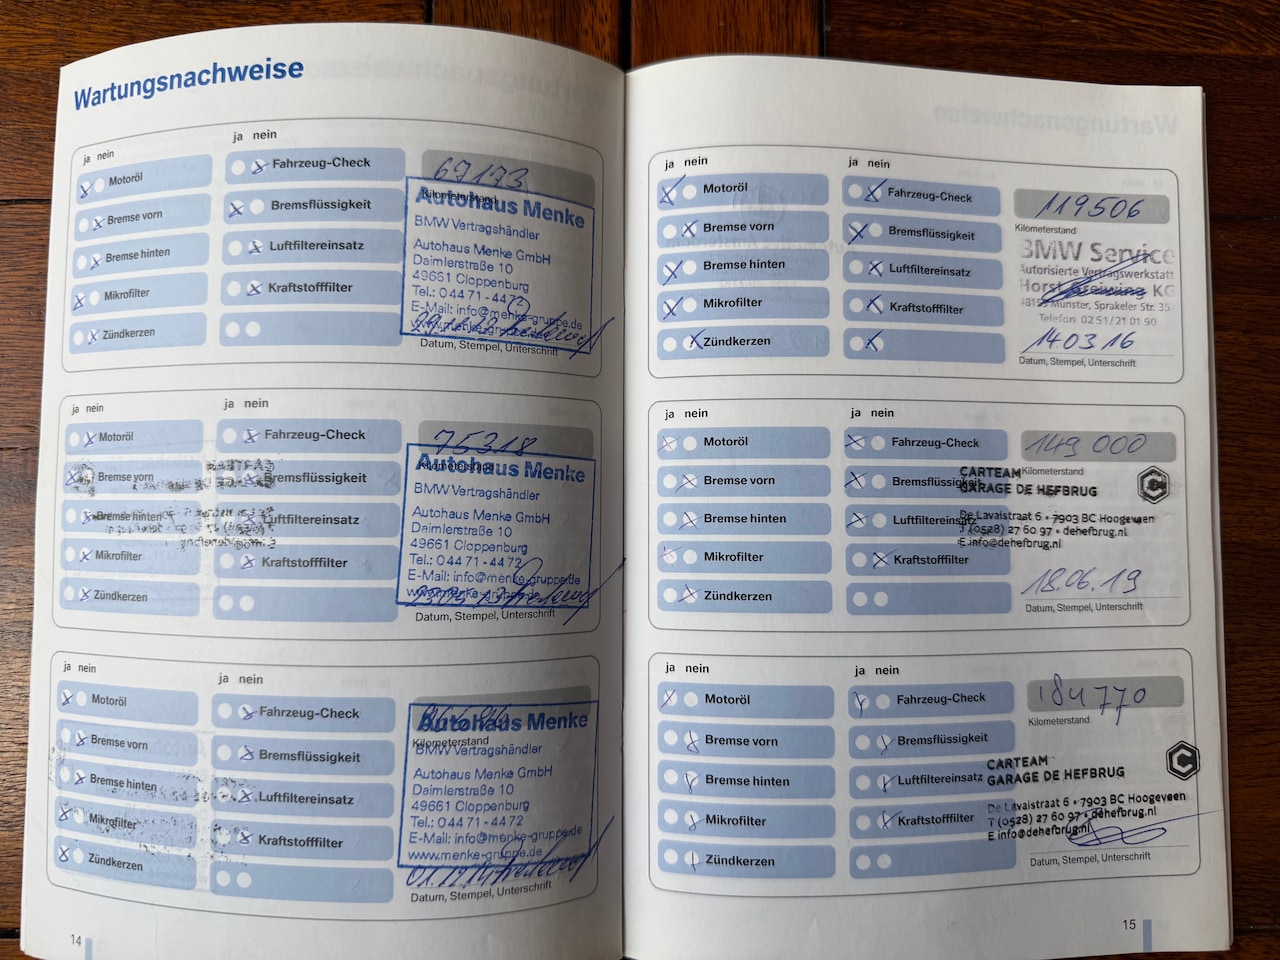 Wartungsnachweise
ja nein
ja nein
Motoröl
Fahrzeug-Check
Bremse vorn
Bremsflüssigkeit
Bremse hinten
Luftfiltereinsatz
Mikrofilter
Kraftstofffilter
Zündkerzen
Kilometerstand
Autohaus Menke
BMW Vertragshändler
Autohaus Menke GmbH
Daimlerstraße 10
49661 Cloppenburg
Tel.: 0 44 71 - 44 72
E-Mail: info@menke-gruppe.de
www.menke-gruppe.de
Datum, Stempel, Unterschrift
ja nein
ja nein
Motoröl
Fahrzeug-Check
Bremse vorn
Bremsflüssigkeit
Bremse hinten
Luftfiltereinsatz
Mikrofilter
Kraftstofffilter
Zündkerzen
75318
Kilometerstand
Autohaus Menke
BMW Vertragshändler
Autohaus Menke GmbH
Daimlerstraße 10
49661 Cloppenburg
Tel.: 0 44 71 - 44 72
E-Mail: info@menke-gruppe.de
www.menke-gruppe.de
Datum, Stempel, Unterschrift
ja nein
ja nein
Motoröl
Fahrzeug-Check
Bremse vorn
Bremsflüssigkeit
Bremse hinten
Luftfiltereinsatz
Mikrofilter
Kraftstofffilter
Zündkerzen
Kilometerstand
Autohaus Menke
BMW Vertragshändler
Autohaus Menke GmbH
Daimlerstraße 10
49661 Cloppenburg
Tel.: 0 44 71 - 44 72
E-Mail: info@menke-gruppe.de
www.menke-gruppe.de
01.12.14
Datum, Stempel, Unterschrift
14
ja nein
ja nein
Motoröl
Fahrzeug-Check
Bremse vorn
Bremsflüssigkeit
Bremse hinten
Luftfiltereinsatz
Mikrofilter
Kraftstofffilter
Zündkerzen
119506
Kilometerstand
BMW Service
Autorisierte Vertragswerkstatt
Horst Greiwing KG
48159 Münster, Sprakeler Str. 35
Telefon 02 51 / 21 01 90
14.03.16
Datum, Stempel, Unterschrift
ja nein
ja nein
Motoröl
Fahrzeug-Check
Bremse vorn
Bremsflüssigkeit
Bremse hinten
Luftfiltereinsatz
Mikrofilter
Kraftstofffilter
Zündkerzen
149 000
Kilometerstand
CARTEAM
GARAGE DE HEFBRUG
De Lavalstraat 6 • 7903 BC Hoogeveen
T (0528) 27 60 97 • dehefbrug.nl
E info@dehefbrug.nl
18.06.19
Datum, Stempel, Unterschrift
ja nein
ja nein
Motoröl
Fahrzeug-Check
Bremse vorn
Bremsflüssigkeit
Bremse hinten
Luftfiltereinsatz
Mikrofilter
Kraftstofffilter
Zündkerzen
184770
Kilometerstand
CARTEAM
GARAGE DE HEFBRUG
De Lavalstraat 6 • 7903 BC Hoogeveen
T (0528) 27 60 97 • dehefbrug.nl
E info@dehefbrug.nl
Datum, Stempel, Unterschrift
15